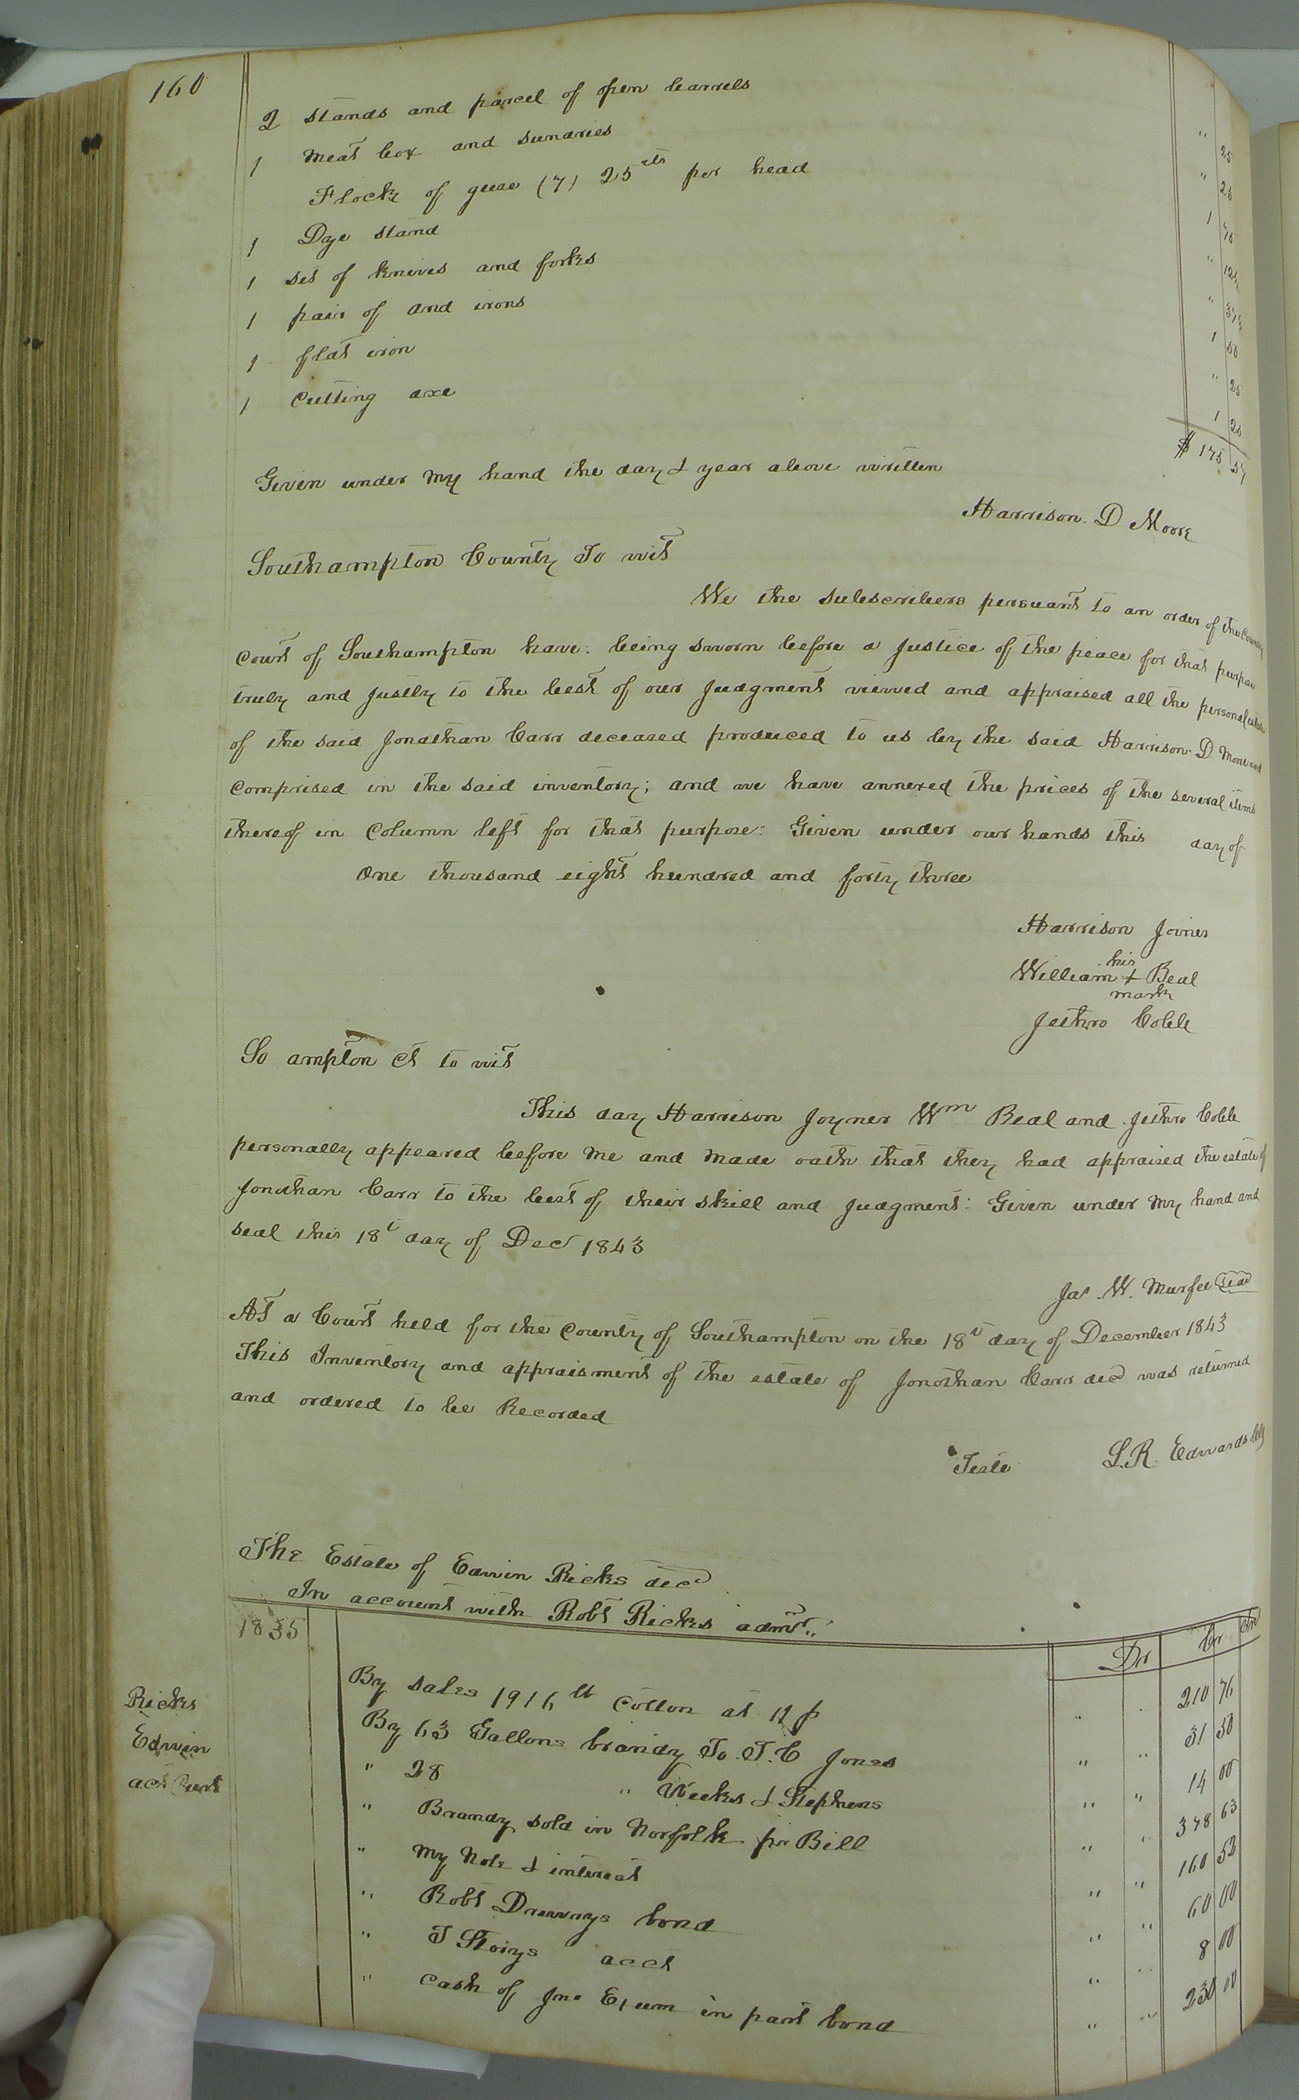 160
2 stands and parcel of open barrels " 25
1 meat box and sundries " 25
Flock of geese (7) 25 cts per head 1 75
1 Dye stand " 12½
1 set of knives and forks " 37½
1 pair of and irons 1 50
1 flat iron " 25
1 cutting axe 1 25
$ 175
Given under my hand the day & year above written
Harrison. D Moore
Southampton County To wit
We the subscribers persuant to an order of the County
Court of Southampton have: being sworn before a Justice of the peace for that purpose
truly and justly to the best of our Judgment viewed and appraised all the personal estate
of the said Jonathan Carr deceased produced to us by the said Harrison. D. Moore and
comprised in the said inventory; and we have annexed the prices of the several items
thereof in column left for that purpose: Given under our hands this day of
One thousand eight hundred and forty three
Harrison Joiner
William his + mark Beal
Jethro Cobb
So ampton ct to wit
This day Harrison Joyner Wm Beal and Jethro Cobb
personally appeared before me and made oath that they had appraised the estate of
Jonathan Carr to the best of their skill and judgment: Given under my hand and
seal this 18t day of Decr 1843
Jas. W. Murfee Seal
At a Court held for the County of Southampton on the 18t day of December 1843
This Inventory and appraisment of the estate of Jonathan Carr decd was returned
and ordered to be Recorded
Teste L.R. Edwards Clk
The Estate of Edwin Ricks decd
In account with Robt Ricks admr
1835 Dr Cr
Ricks
Edwin
act Curt
By sales 1916 lb cotton at 11 p " " 210 76
By 63 Gallons brandy To J. C Jones " " 31 50
" 28 " Weeks & Stephens " " 14 00
" Brandy sold in Norfolk pr Bill " " 378 63
" my note & interest " " 160 52
" Robt Drewrys bond " " 60 00
" T Storys acct " " 8 00
" cash of Jno Exum in part bond " " 230 00